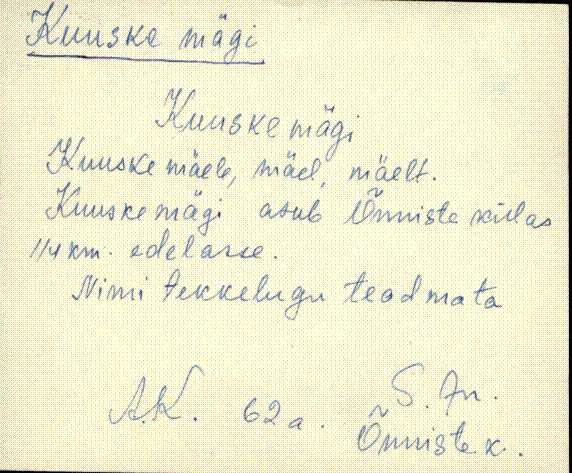 Kuuske mägi
Kuuske mägi
Kuuske mäele, mäel, mäelt.
Kuuske mägi asub Õnniste külas
1/4 km. edelasse.
Nimi tekkelugu teadmata
S. An.
A.K. 62 a.
Õnniste k.